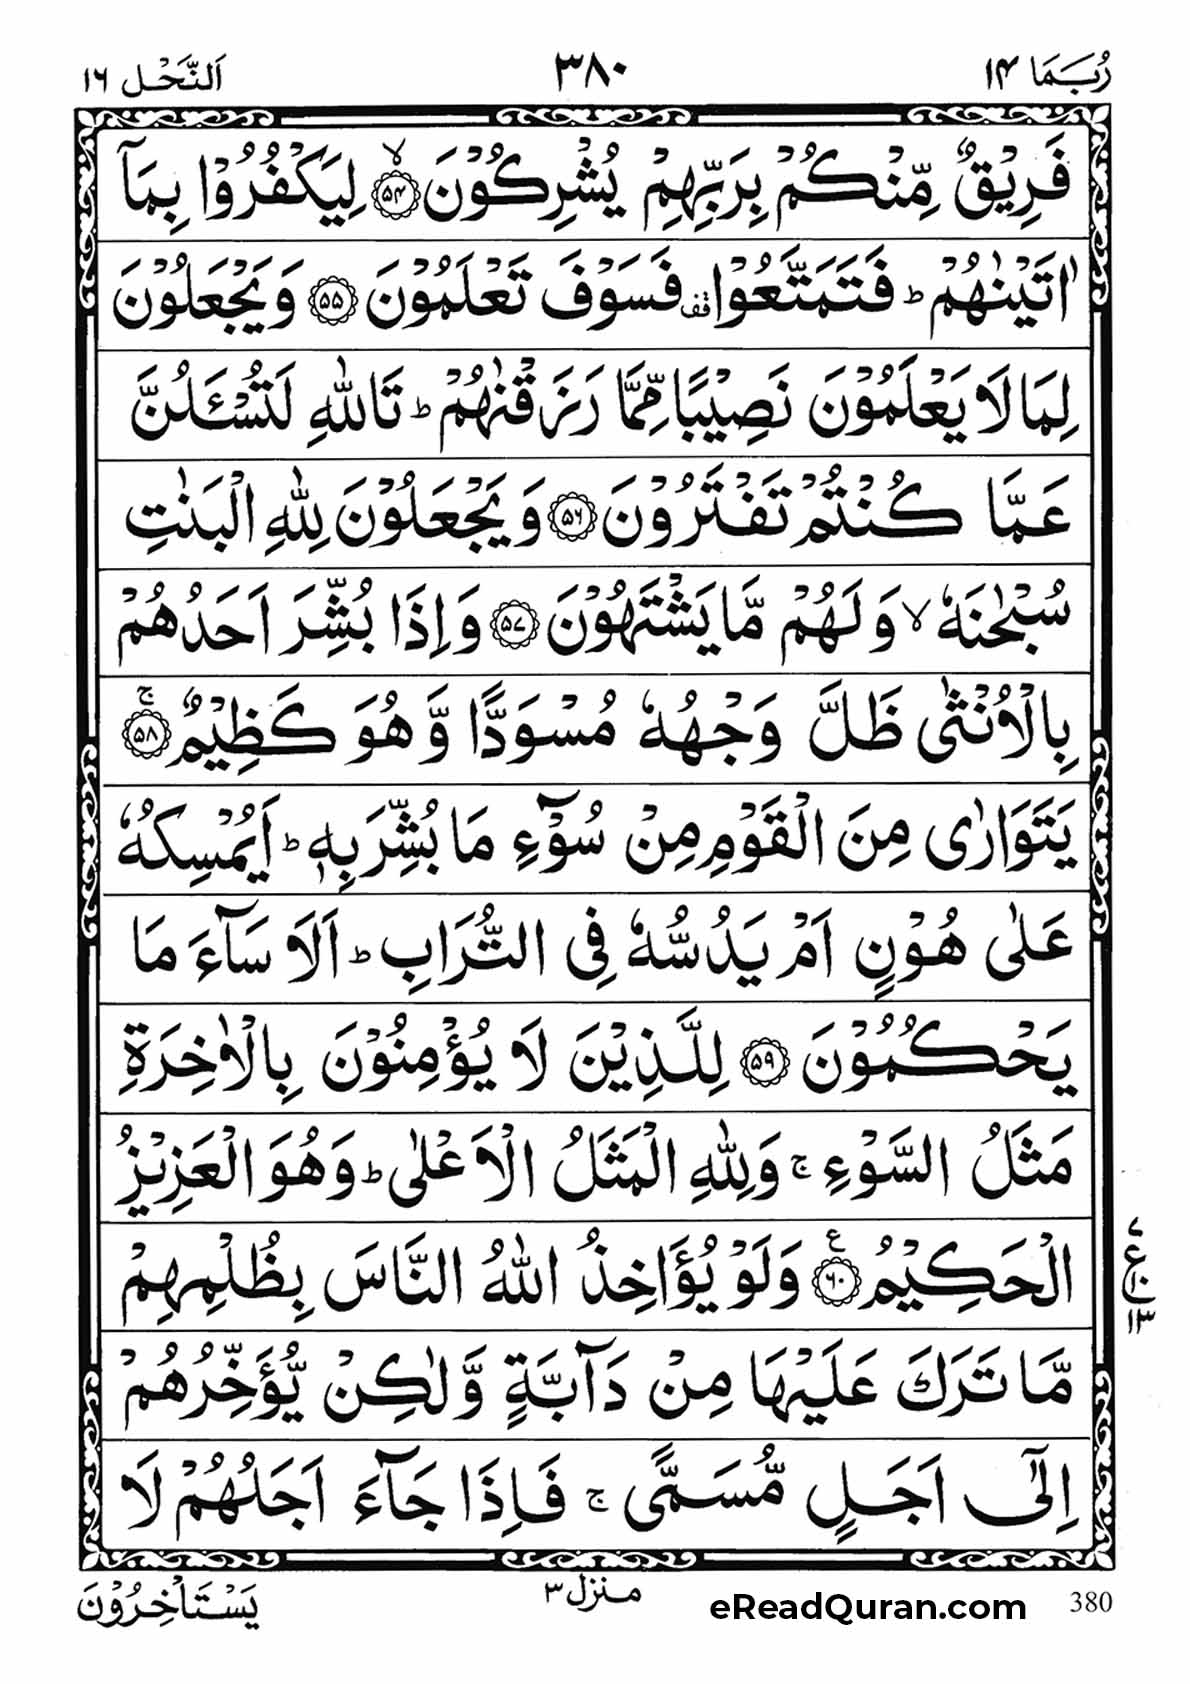 رُبَمَا ١٤
٣٨٠
اَلنَّحْل ١٦
فَرِيْقٌ مِّنْكُمْ بِرَبِّهِمْ يُشْرِكُوْنَ ۙ﴿۵۴﴾ لِيَكْفُرُوْا بِمَاۤ
اٰتَيْنٰهُمْ ؕ فَتَمَتَّعُوْا ۥ قف فَسَوْفَ تَعْلَمُوْنَ ﴿۵۵﴾ وَيَجْعَلُوْنَ
لِمَا لَا يَعْلَمُوْنَ نَصِيْبًا مِّمَّا رَزَقْنٰهُمْ ؕ تَاللّٰهِ لَتُسْـَٔلُنَّ
عَمَّا كُنْتُمْ تَفْتَرُوْنَ ﴿۵۶﴾ وَيَجْعَلُوْنَ لِلّٰهِ الْبَنٰتِ
سُبْحٰنَهٗ ۙ وَلَهُمْ مَّا يَشْتَهُوْنَ ﴿۵۷﴾ وَاِذَا بُشِّرَ اَحَدُهُمْ
بِالْاُنْثٰى ظَلَّ وَجْهُهٗ مُسْوَدًّا وَّهُوَ كَظِيْمٌ ۚ﴿۵۸﴾
يَتَوَارٰى مِنَ الْقَوْمِ مِنْ سُوْٓءِ مَا بُشِّرَ بِهٖ ؕ اَيُمْسِكُهٗ
عَلٰى هُوْنٍ اَمْ يَدُسُّهٗ فِى التُّرَابِ ؕ اَلَا سَآءَ مَا
يَحْكُمُوْنَ ﴿۵۹﴾ لِلَّذِيْنَ لَا يُؤْمِنُوْنَ بِالْاٰخِرَةِ
مَثَلُ السَّوْءِ ۚ وَلِلّٰهِ الْمَثَلُ الْاَعْلٰى ؕ وَهُوَ الْعَزِيْزُ
الْحَكِيْمُ ﴿۶۰﴾ ع وَلَوْ يُؤَاخِذُ اللّٰهُ النَّاسَ بِظُلْمِهِمْ
مَّا تَرَكَ عَلَيْهَا مِنْ دَآبَّةٍ وَّلٰكِنْ يُّؤَخِّرُهُمْ
اِلٰٓى اَجَلٍ مُّسَمًّى ۚ فَاِذَا جَآءَ اَجَلُهُمْ لَا
يَسْتَاْخِرُوْنَ
منزل ٣
eReadQuran.com
380